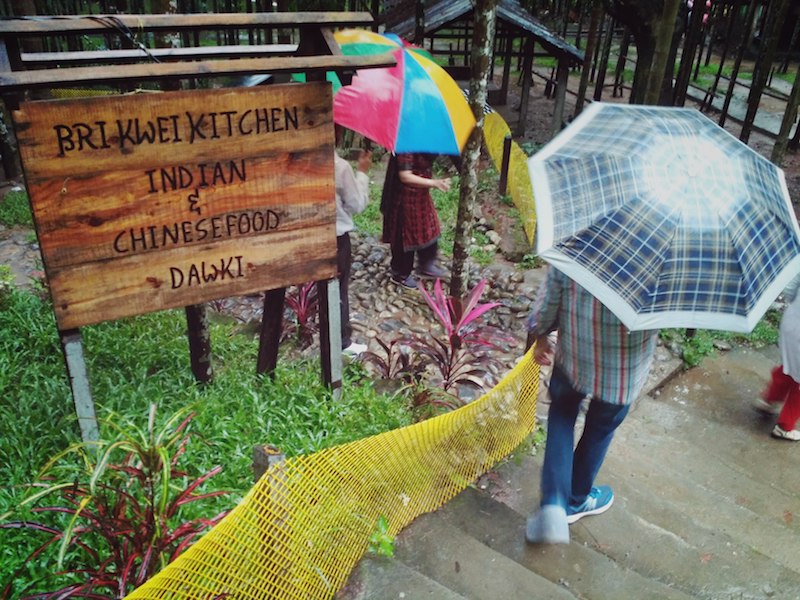 BRI KWEI KITCHEN
INDIAN
&
CHINESE FOOD
DAWKI